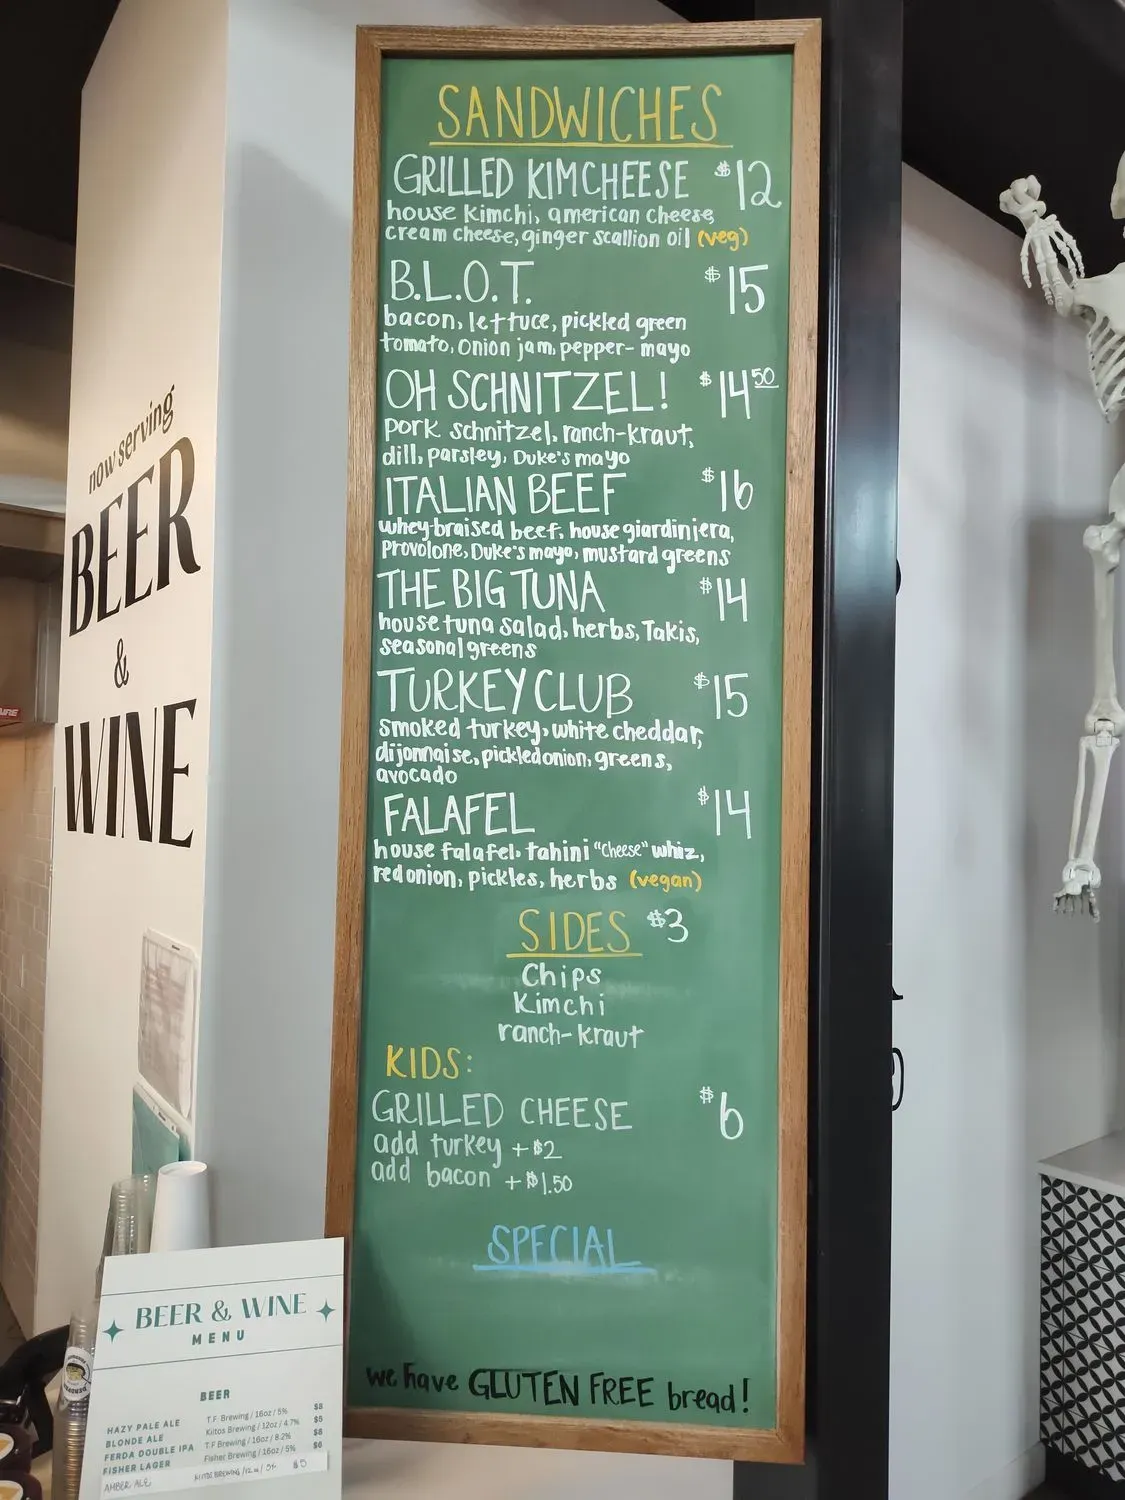 SANDWICHES
GRILLED KIMCHEESE $12
house kimchi, american cheese,
cream cheese, ginger scallion oil (veg)
B.L.O.T. $15
bacon, lettuce, pickled green
tomato, onion jam, pepper-mayo
OH SCHNITZEL! $14 50
pork schnitzel, ranch-kraut,
dill, parsley, Duke's mayo
ITALIAN BEEF $16
whey-braised beef, house giardiniera,
Provolone, Duke's mayo, mustard greens
THE BIG TUNA $14
house tuna salad, herbs, Takis,
seasonal greens
TURKEY CLUB $15
smoked turkey, white cheddar,
dijonnaise, pickled onion, greens,
avocado
FALAFEL $14
house falafel, tahini "cheese" whiz,
red onion, pickles, herbs (vegan)
SIDES $3
Chips
Kimchi
ranch-kraut
KIDS:
GRILLED CHEESE $6
add turkey +$2
add bacon +$1.50
SPECIAL
we have GLUTEN FREE bread!
now serving
BEER
&
WINE
BEER & WINE
MENU
BEER
HAZY PALE ALE T.F Brewing / 16oz / 5% $8
BLONDE ALE Kiitos Brewing / 12oz / 4.7% $5
FERDA DOUBLE IPA T.F Brewing / 16oz / 8.2% $8
FISHER LAGER Fisher Brewing / 16oz / 5% $6
AMBER ALE KIITOS BREWING / 12oz / 5% $5